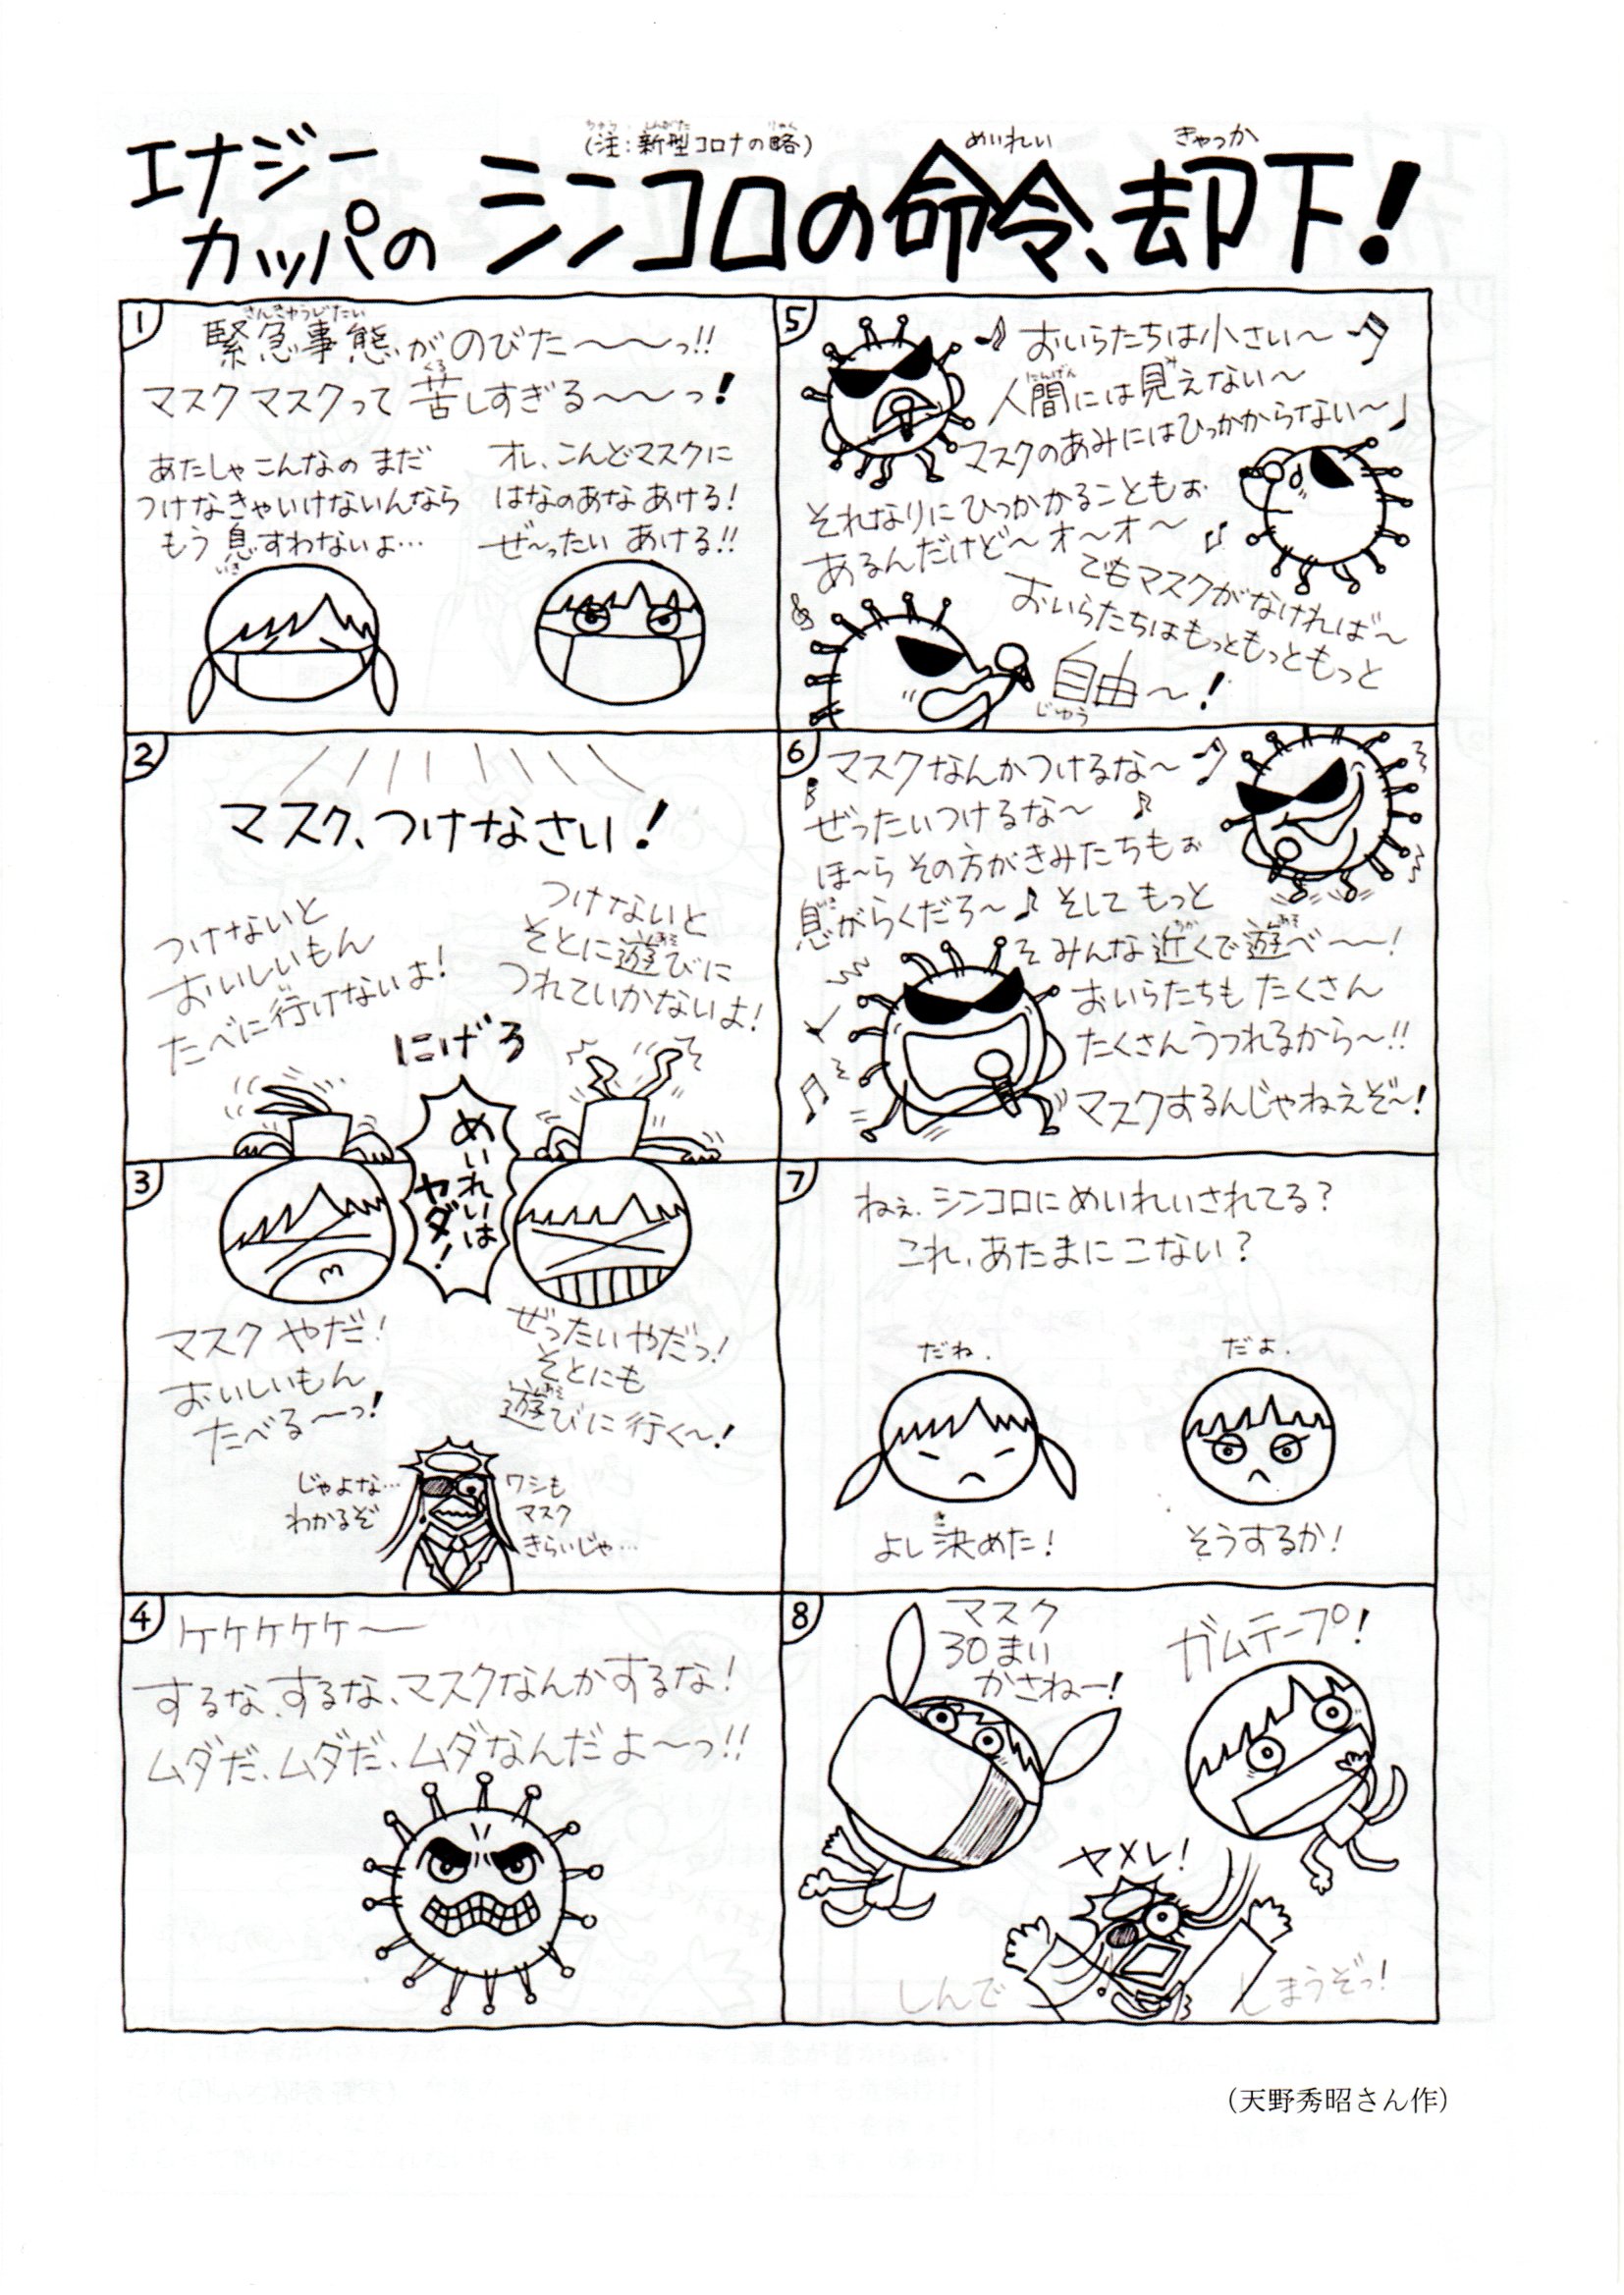 エナジー
カッパの
(注:新型コロナの略)
ちゅう しんがた りゃく
めいれい
きゃっか
シンコロの命令、却下!
1
きんきゅうじたい
緊急事態がのびた〜〜〜っ!!
くる
マスクマスクって苦しすぎる〜〜〜っ!
あたしゃこんなの まだ
つけなきゃいけないんなら
もう息すわないよ…
いき
オレ、こんどマスクに
はなのあな あける!
ぜ〜ったい あける!!
2
マスク、つけなさい!
つけないと
おいしいもん
たべに行けないよ!
つけないと
あそ
そとに遊びに
つれていかないよ!
にげろ
3
めいれいは
ヤダ!
マスク やだ!
おいしいもん
たべる〜っ!
ぜったいやだっ!
そとにも
あそ
遊びに行く〜!
じゃよな…
わかるぞ
ワシも
マスク
きらいじゃ…
4
ケケケケケ〜
するな、するな、マスクなんかするな!
ムダだ、ムダだ、ムダなんだよ〜っ!!
5
おいらたちは小さい〜
にんげん み
人間には見えない〜
マスクのあみにはひっかからない〜
それなりにひっかかることもぉ
あるんだけど〜オ〜オ〜
でもマスクがなければ〜
おいらたちはもっともっともっと
自由〜!
じゆう
6
マスクなんかつけるな〜
ぜったいつけるな〜
ほ〜ら その方がきみたちもぉ
いき
息がらくだろ〜♪ そして もっと
ちか あそ
みんな近くで遊べ〜〜!
おいらたちも たくさん
たくさんうつれるから〜!!
マスクするんじゃねえぞ〜!
7
ねぇ、シンコロに めいれいされてる?
これ、あたまに こない?
だね.
だよ.
き
よし決めた!
そうするか!
8
マスク
30まい
かさねー!
ガムテープ!
ヤメレ!
しんで
しまうぞっ!
(天野秀昭さん作)